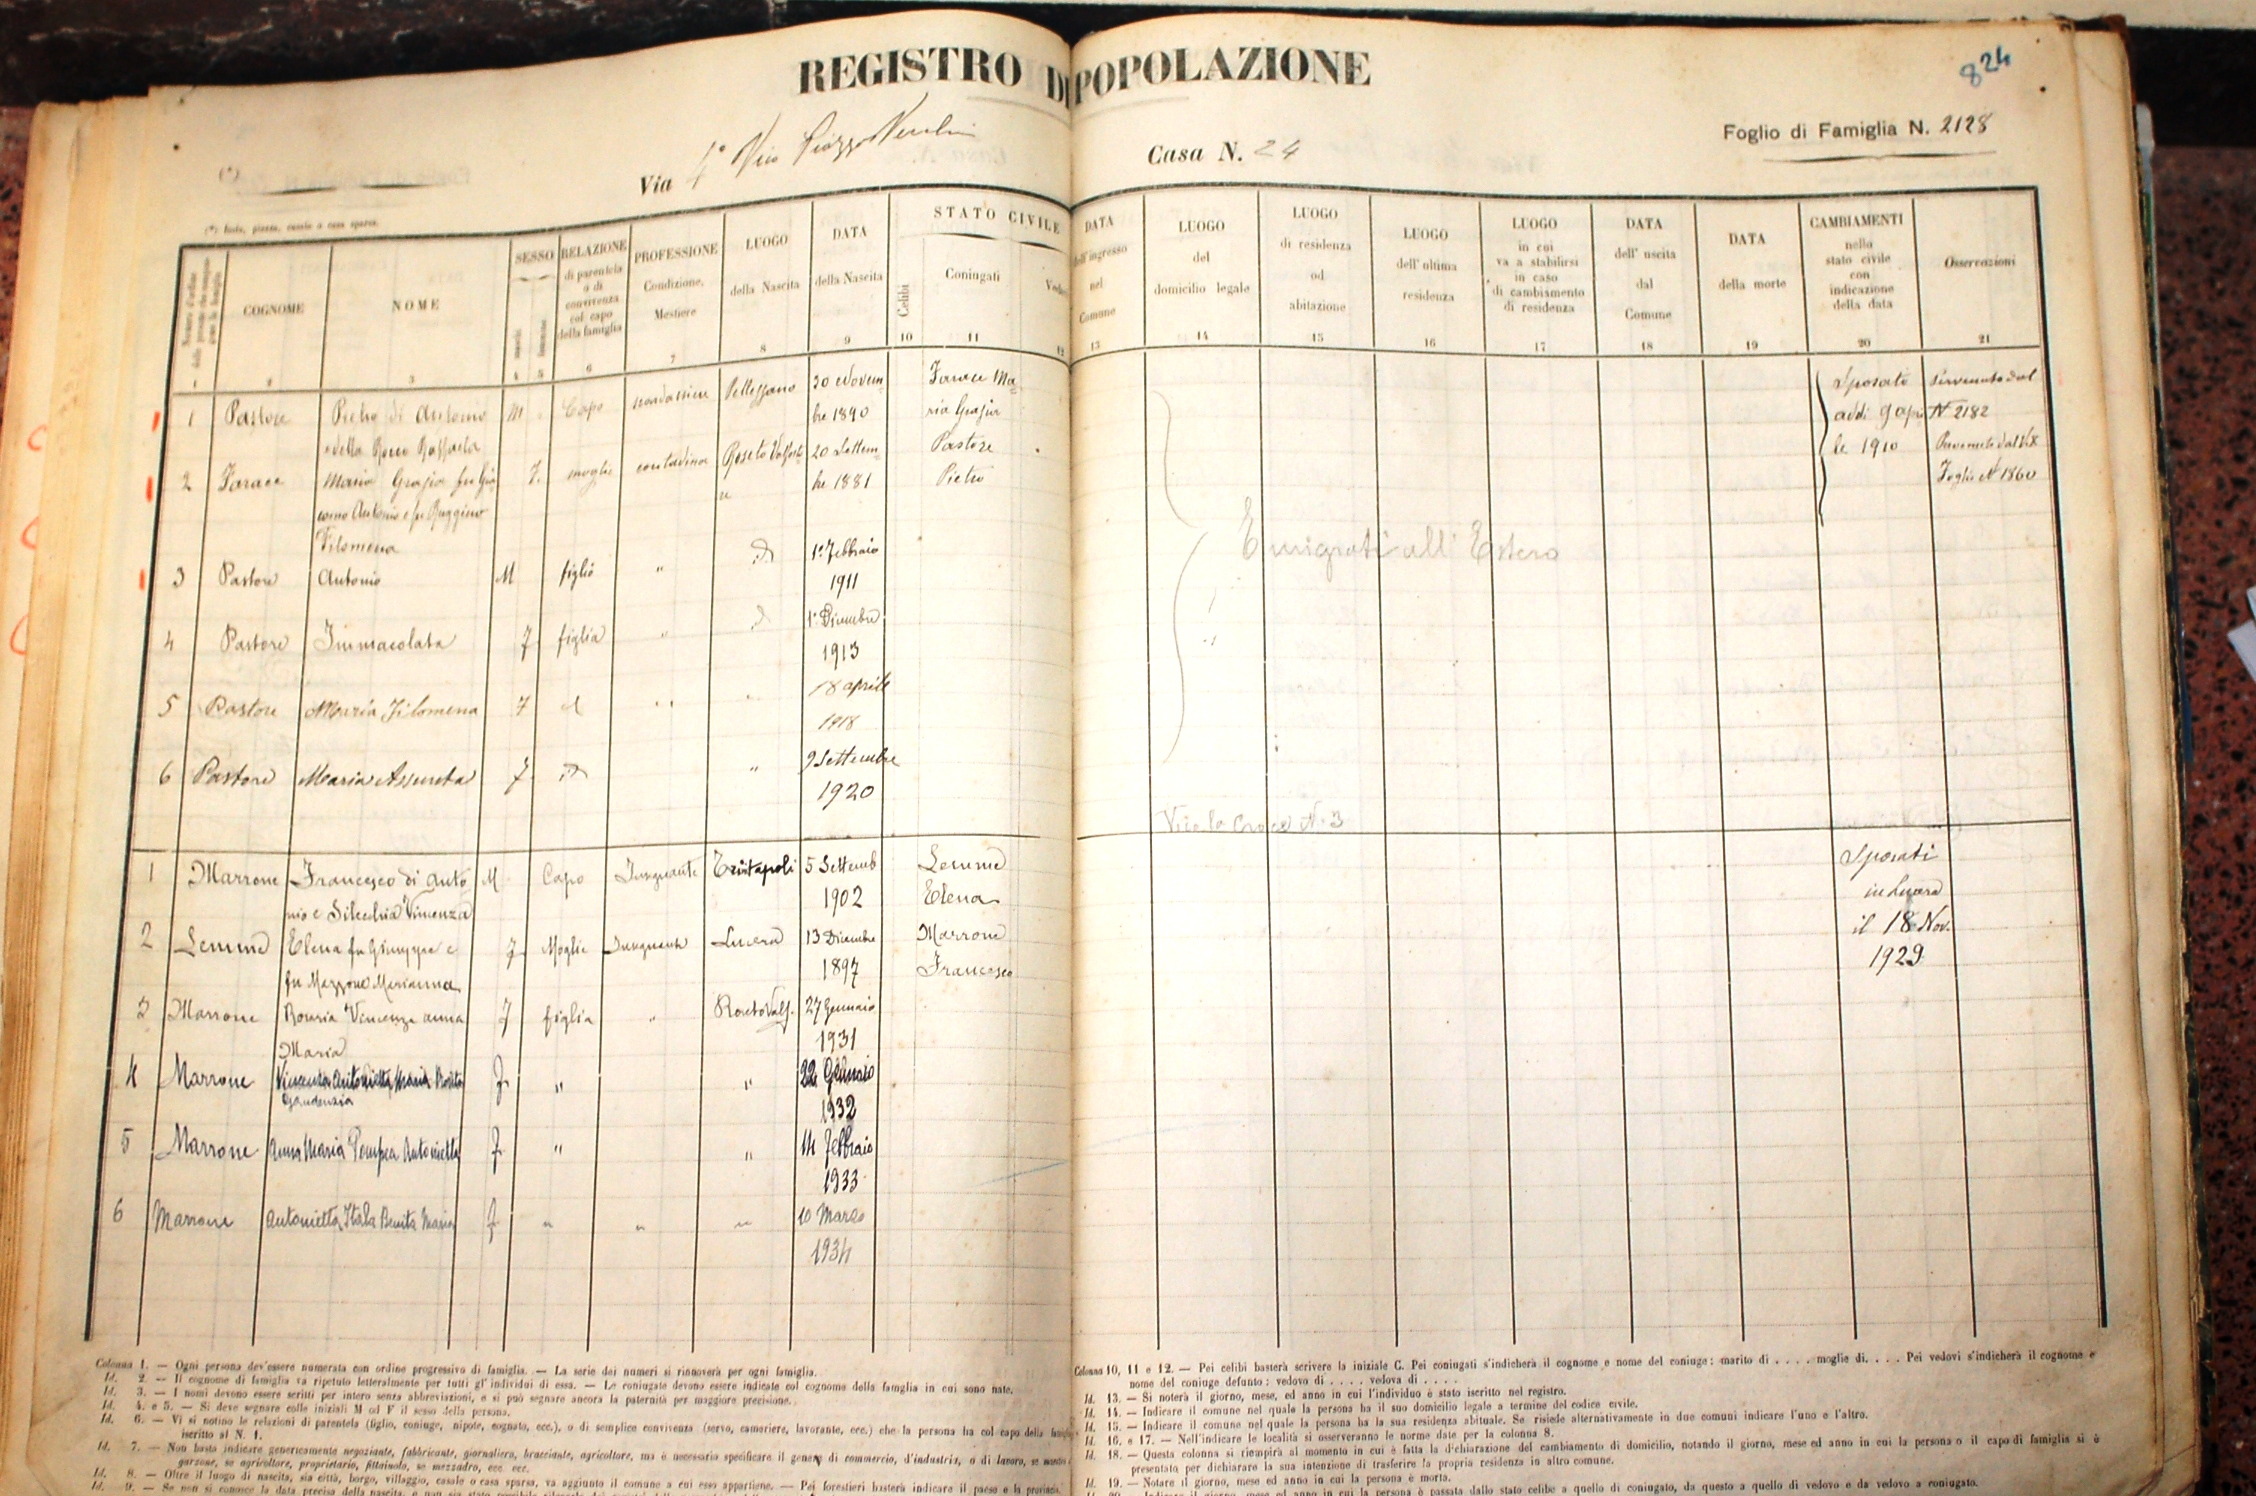 REGISTRO DI POPOLAZIONE
824
Via 4° Vico Piazza
Casa N. 24
Foglio di Famiglia N. 2128
(*)
(*) Isola, piazza, cascia o casa sparsa.
COGNOME
NOME
SESSO
maschi
femmine
RELAZIONE
di parentela
o di
convivenza
col capo
della famiglia
PROFESSIONE
Condizione,
Mestiere
LUOGO
della Nascita
DATA
della Nascita
STATO CIVILE
Celibi
Coniugati
DATA
dell'ingresso
nel
Comune
LUOGO
del
domicilio legale
LUOGO
di residenza
od
abitazione
LUOGO
dell'ultima
residenza
LUOGO
in cui
va a stabilirsi
in caso
di cambiamento
di residenza
DATA
dell'uscita
dal
Comune
DATA
della morte
CAMBIAMENTI
nello
stato civile
con
indicazione
della data
Osservazioni
1 2 3 4 5 6 7 8 9 10 11 12 13 14 15 16 17 18 19 20 21
1 Pastore Pietro di Antonio M Capo Pellezzano 30 Novem= Farace Ma= Sposato Pervenuto dal
e della Rocco Raffaela bre 1890 ria Grazia addi 9 apri N° 2182
2 Farace Maria Grazia fu Gia= F. moglie contadina Roseto Valforto= 20 Settem= Pastore le 1910
como Antonio e fu Ruggiero re bre 1881 Pietro Foglio N° 1860
Filomena
Emigrati all'Estero
3 Pastore Antonio M figlio " 1° Febbraio
1911
4 Pastore Immacolata F figlia " 1° Dicembre
1913
5 Pastore Maria Filomena F 18 aprile
1918
6 Pastore Maria Assunta F " 9 Settembre
1920
Via la Croce N. 3
1 Marrone Francesco di Anto M Capo Insegnante Trinitapoli 5 Settemb Lemme Sposati
nio e Vincenza 1902 Elena in Lucera
2 Lemme Elena fu Giuseppe e F Moglie Insegnante Lucera 13 Dicembre Marrone il 18 Nov.
fu Mazzone Marianna 1897 Francesco 1929
3 Marrone Vincenza Anna F figlia " Roseto Valf. 27 Gennaio
Maria 1931
4 Marrone Vincenza Antonietta Maria F " " 22 Gennaio
Gaudenzia 1932
5 Marrone Anna Maria Pompea Antonietta F " " 14 Febbraio
1933
6 Marrone Antonietta Itala Benita Maria F " " " 10 Marzo
1934
Colonna 1. — Ogni persona dev'essere numerata con ordine progressivo di famiglia. — La serie dei numeri si rinnoverà per ogni famiglia.
Id. 2. — Il cognome di famiglia va ripetuto letteralmente per tutti gl'individui di essa. — Le coniugate devono essere indicate col cognome della famglia in cui sono nate.
Id. 3. — I nomi devono essere scritti per intero senza abbreviazioni, e si può segnare ancora la paternità per maggiore precisione.
Id. 4. e 5. — Si deve segnare colle iniziali M ed F il sesso della persona.
Id. 6. — Vi si notino le relazioni di parentela (figlio, coniuge, nipote, cognato, ecc.), o di semplice convivenza (servo, cameriere, lavorante, ecc.) che la persona ha col capo della famiglia
iscritto al N. 1.
Id. 7. — Non basta indicare genericamente negoziante, fabbricante, giornaliero, bracciante, agricoltore, ma è necessario specificare il genere di commercio, d'industria, o di lavoro, se
garzone, se agricoltore, proprietario, fittaiuolo, se mezzadro, ecc. ecc.
Id. 8. — Oltre il luogo di nascita, sia città, borgo, villaggio, casale o casa sparsa, va aggiunto il comune a cui esso appartiene. — Pei forestieri basterà indicare il paese e la provincia.
Id. 9. — Se non si conosce la data precisa della nascita,
Colonna 10, 11 e 12. — Pei celibi basterà scrivere la iniziale C. Pei coniugati s'indicherà il cognome e nome del coniuge: marito di . . . . moglie di. . . . Pei vedovi s'indicherà il cognome e
nome del coniuge defunto: vedovo di . . . . vedova di . . . .
Id. 13. — Si noterà il giorno, mese, ed anno in cui l'individuo è stato iscritto nel registro.
Id. 14. — Indicare il comune nel quale la persona ha il suo domicilio legale a termine del codice civile.
Id. 15. — Indicare il comune nel quale la persona ha la sua residenza abituale. Se risiede alternativamente in due comuni indicare l'uno e l'altro.
Id. 16. e 17. — Nell'indicare le località si osserveranno le norme date per la colonna 8.
Id. 18. — Questa colonna si riempirà al momento in cui è fatta la dichiarazione del cambiamento di domicilio, notando il giorno, mese ed anno in cui la persona o il capo di famiglia si è
presentato per dichiarare la sua intenzione di trasferire la propria residenza in altro comune.
Id. 19. — Notare il giorno, mese ed anno in cui la persona è morta.
Id. 20. — Indicare il giorno, mese ed anno in cui la persona è passata dallo stato celibe a quello di coniugato, da questo a quello di vedovo e da vedovo a coniugato.